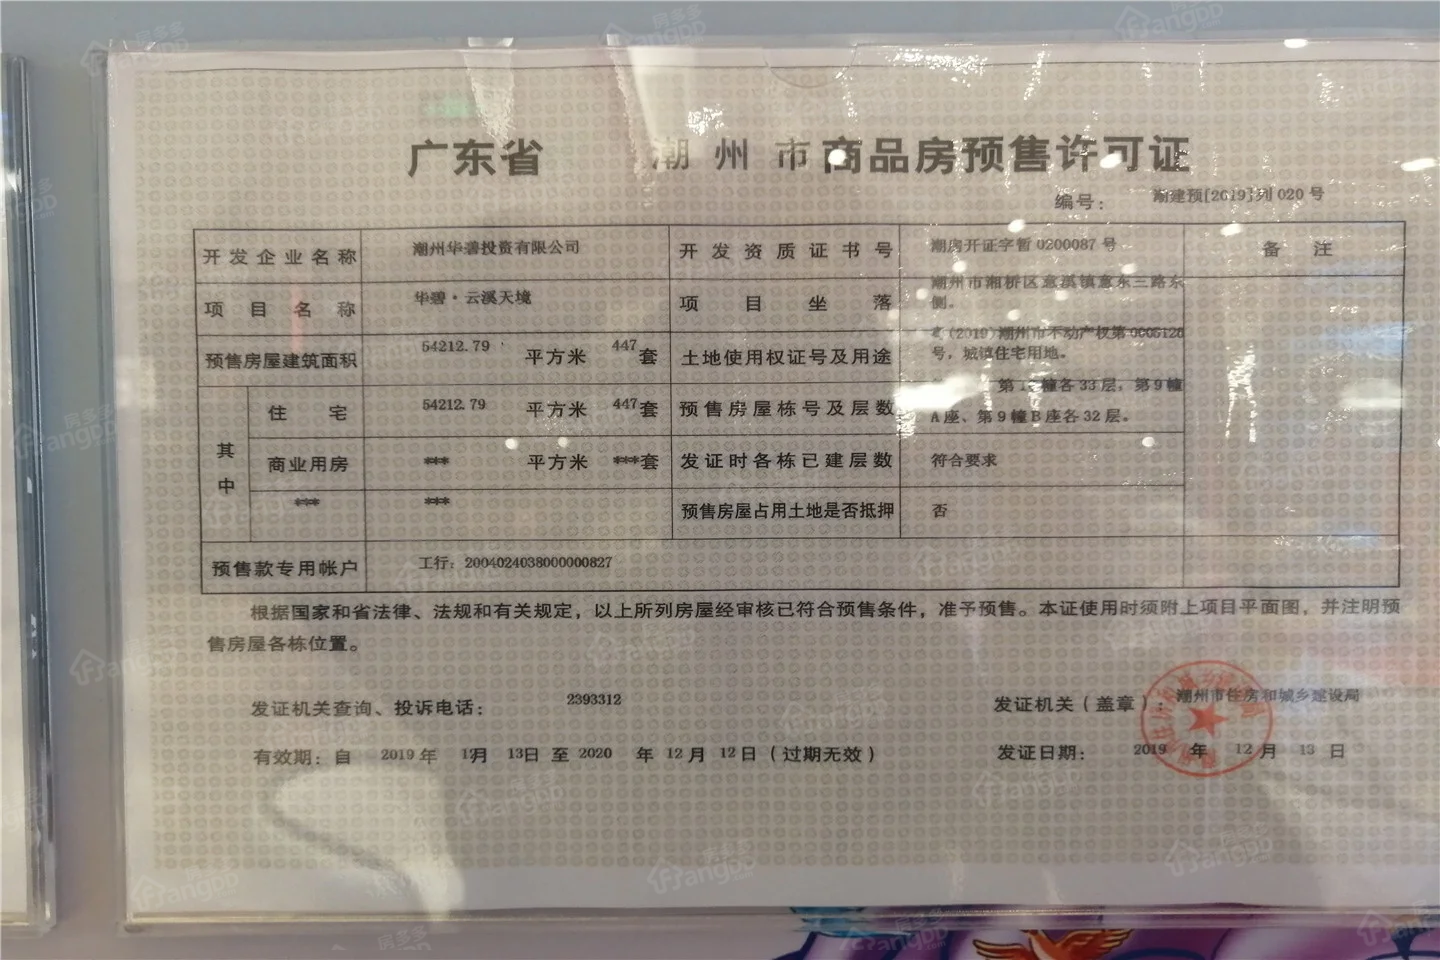 广东省 潮州市商品房预售许可证
编号： 潮建预[2019]列 020 号
开发企业名称 潮州华碧投资有限公司 开发资质证书号 潮房开证字暂 0200087 号 备注
项目名称 华碧·云溪天境 项目坐落 潮州市湘桥区意溪镇意东三路东
侧。
预售房屋建筑面积 54212.79 平方米 447套 土地使用权证号及用途 (2019)潮州市不动产权第
号，城镇住宅用地。
其中 住宅 54212.79 平方米 447套 预售房屋栋号及层数 幢各33层，第9幢
A座、第9幢B座各32层。
商业用房 *** 平方米 ***套 发证时各栋已建层数 符合要求
*** *** 预售房屋占用土地是否抵押 否
预售款专用帐户 工行：2004024038000000827
根据国家和省法律、法规和有关规定，以上所列房屋经审核已符合预售条件，准予预售。本证使用时须附上项目平面图，并注明预
售房屋各栋位置。
发证机关查询、投诉电话： 2393312 发证机关（盖章）：潮州市住房和城乡建设局
有效期：自 2019 年 12月 13日 至 2020 年 12 月 12 日（过期无效） 发证日期： 2019 年 12 月 13 日
房多多
Fangdd.com